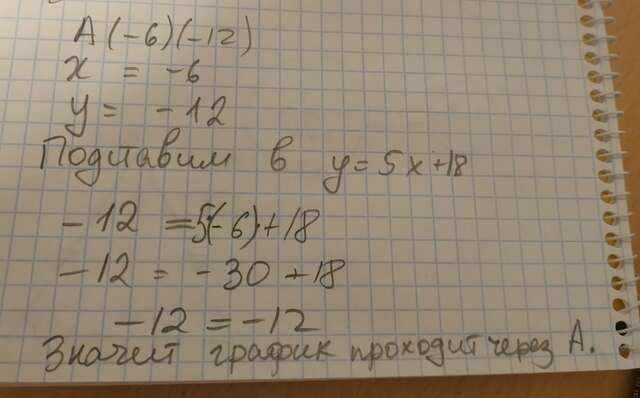 A(-6)(-12)
x = -6
y = -12
Подставим в y=5x+18
-12 =5(-6)+18
-12 = -30+18
-12 = -12
Значит график проходит через А.